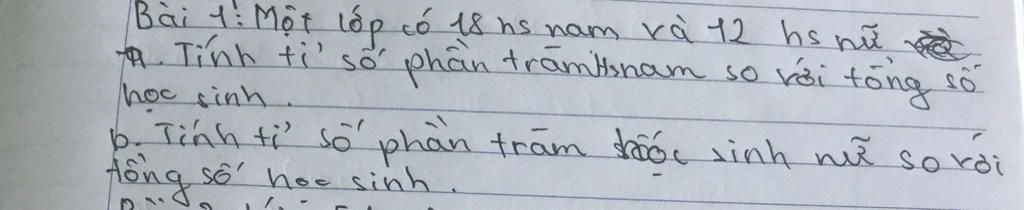 Bài 1: Một lớp có 18 hs nam và 12 hs nữ
a. Tính tỉ số phần trăm Hs nam so với tổng số
học sinh.
b. Tính tỉ số phần trăm học sinh nữ so với
tổng số học sinh.